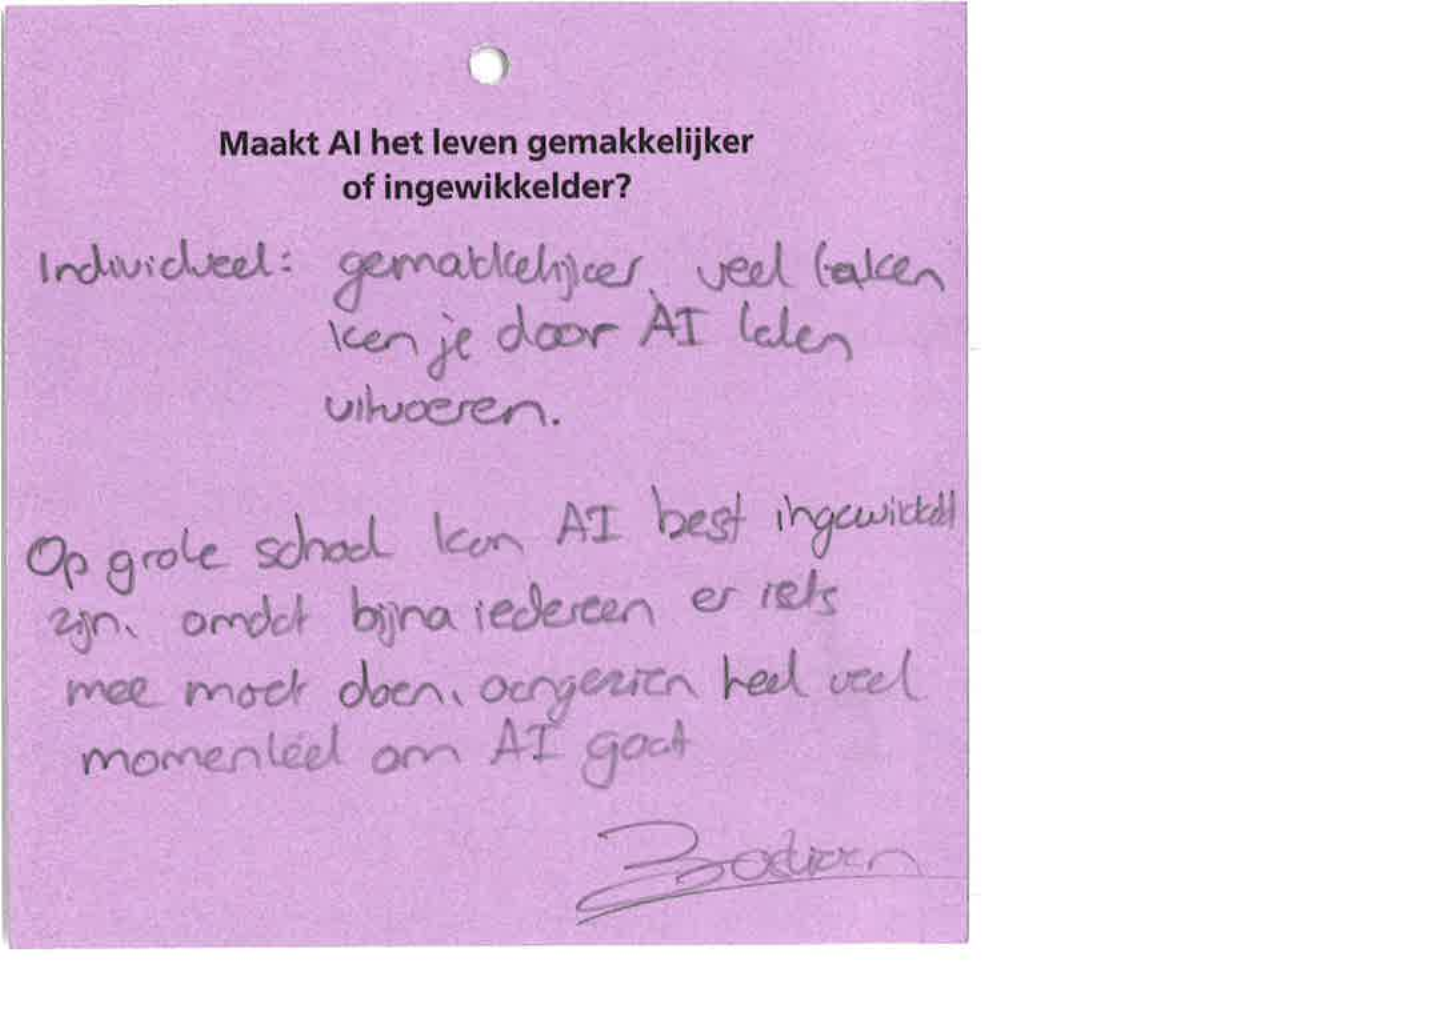 Maakt AI het leven gemakkelijker
of ingewikkelder?
Individueel: gemakkelijker, veel taken
kan je door AI laten
uitvoeren.
Op grote schaal kan AI best ingewikkeld
zijn, omdat bijna iedereen er iets
mee moet doen, aangezien heel veel
momenteel om AI gaat